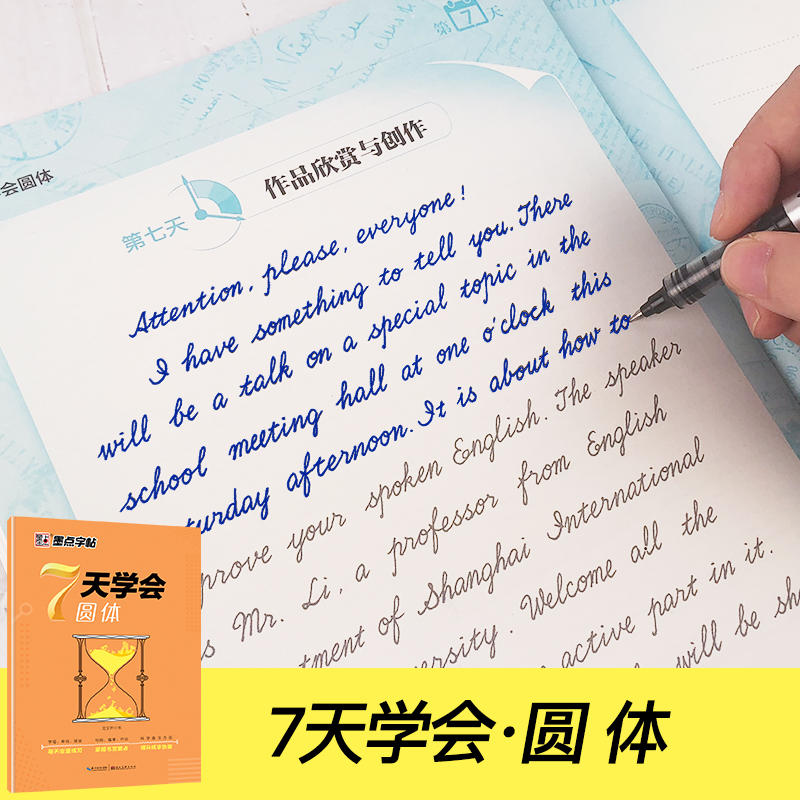 第7天
会圆体
第七天
作品欣赏与创作
Attention, please, everyone!
I have something to tell you. There
will be a talk on a special topic in the
school meeting hall at one o'clock this
turday afternoon. It is about how to
prove your spoken English. The speaker
s Mr. Li, a professor from English
tment of Shanghai International
ersity. Welcome all the
active part in it.
will be sh
墨点字帖
7天学会
圆体
7天学会·圆体